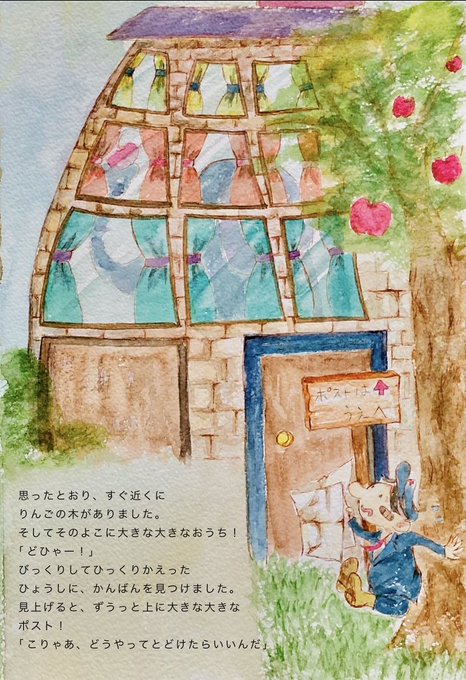 ポストは
うえへ
思ったとおり、すぐ近くに
りんごの木がありました。
そしてそのよこに大きな大きなおうち！
「どひゃー！」
びっくりしてひっくりかえった
ひょうしに、かんばんを見つけました。
見上げると、ずうっと上に大きな大きな
ポスト！
「こりゃあ、どうやってとどけたらいいんだ」